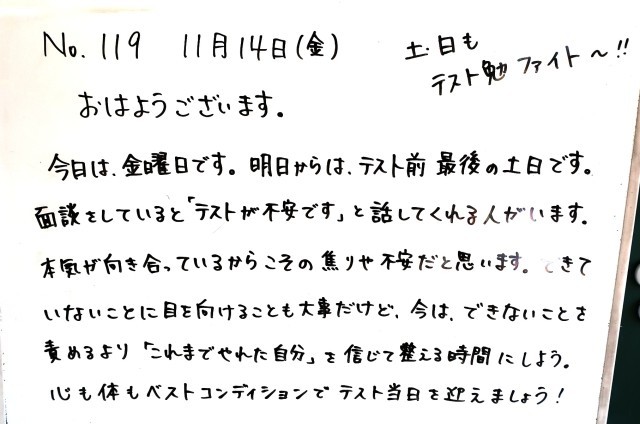 No. 119 11月14日(金)
土・日も
テスト勉 ファイト〜!!
おはようございます。
今日は、金曜日です。明日からは、テスト前 最後の土日です。
面談をしていると「テストが不安です」と話してくれる人がいます。
本気が向き合っているからこその焦りや不安だと思います。できて
いないことに目を向けることも大事だけど、今は、できないことを
責めるより「これまでやれた自分」を信じて整える時間にしよう。
心も体もベストコンディションで テスト当日を迎えましょう!